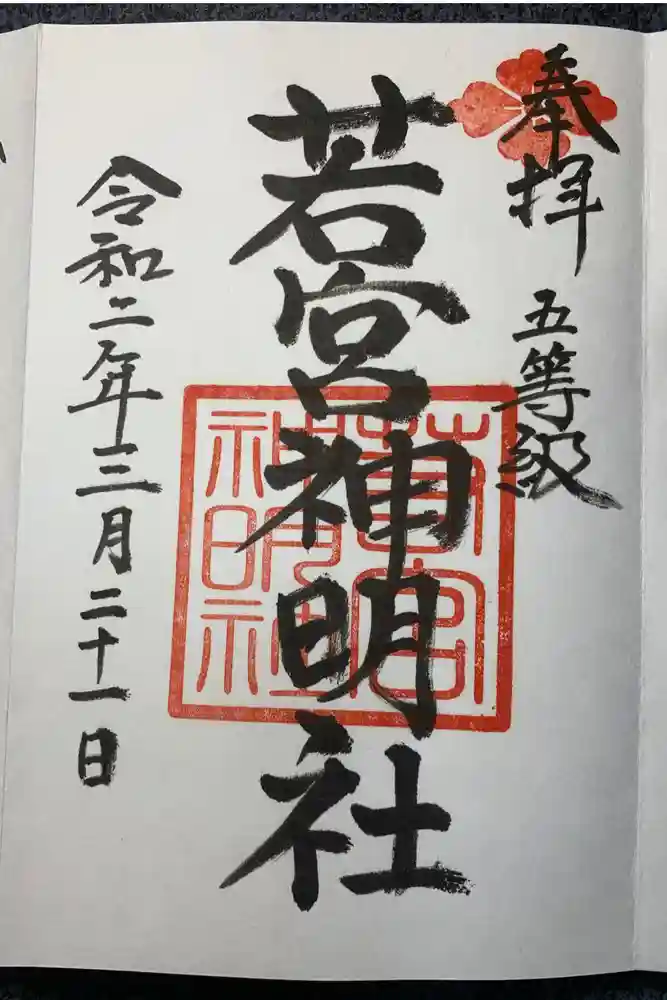 奉拝 五等級
若宮神明社
令和二年三月二十一日
若宮
神明社